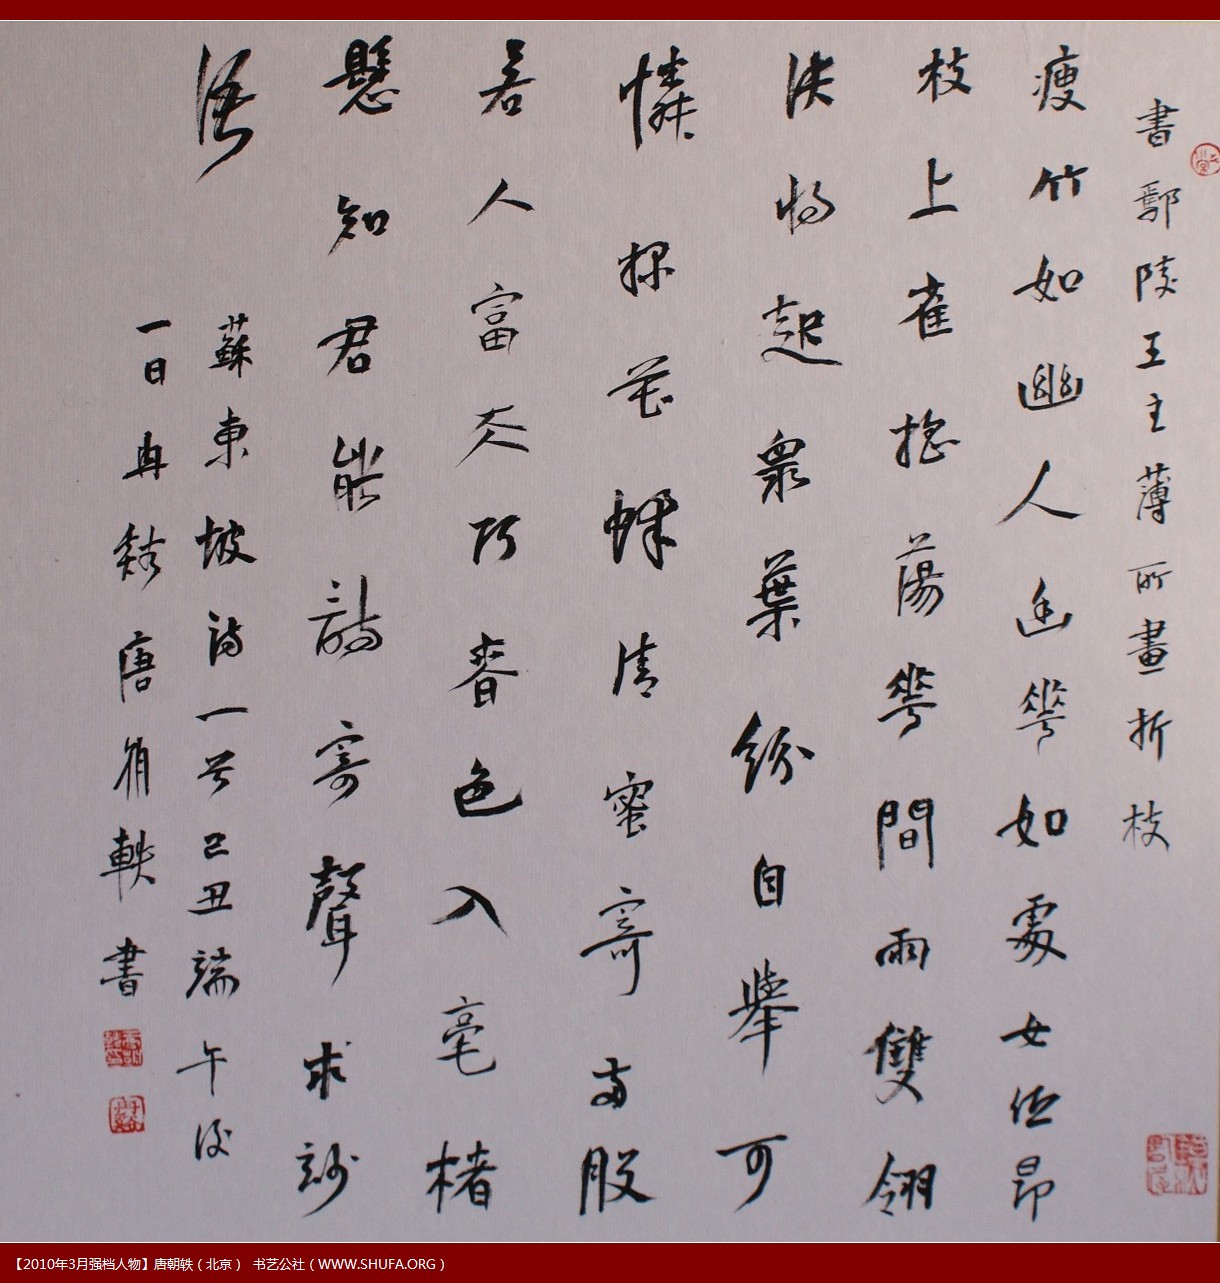 書鄢陵王主薄所畫折枝
瘦竹如幽人幽花如處女低昂
枝上雀搖蕩花間雨雙翎
決将起衆葉紛自舉可
憐採花蜂清蜜寄兩股
若人富天巧春色入毫楮
懸知君能詩寄聲求妙
語
蘇東坡詩一首己丑端午後
一日冉谿唐朝軼書
【2010年3月强档人物】唐朝轶（北京） 书艺公社（WWW.SHUFA.ORG）